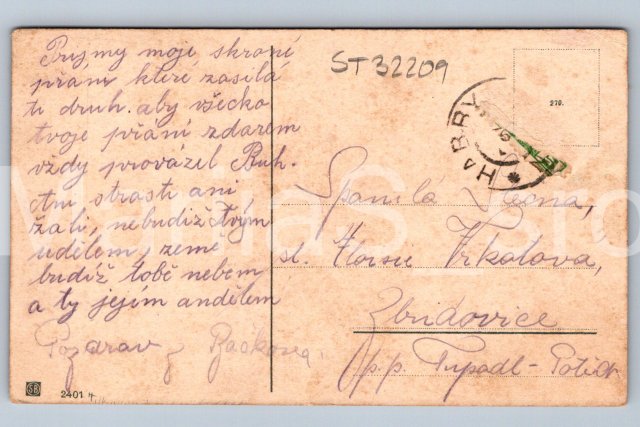 Prijmy moje skroné
přání které zasílá
ti druh. aby všecko
tvoje přání zdarem
vždy provázel Buh.
Ani strasti ani
žali, nebudiž tvým
udělem, země
budiž tobě nebem
a ty jejím andělem
Pozdrav z
ST32209
HABRY
278.
Spanilá
sl.
Zbudovice
p.p. Tupadl-
SB
2401